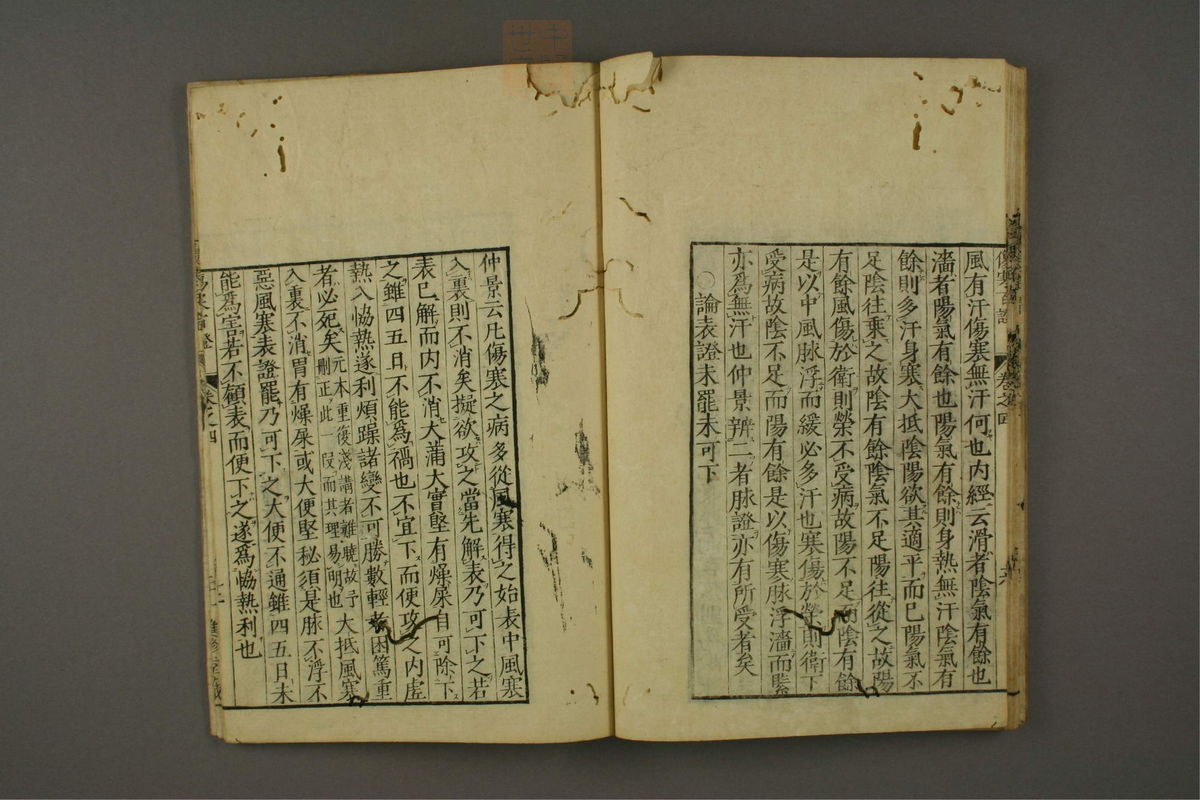 風有汗傷寒無汗何也内經云滑者陰氣有餘也
濇者陽氣有餘也陽氣有餘則身熱無汗陰氣有
餘則多汗身寒大抵陰陽欲其適平而已陽氣不
足陰往乘之故陰有餘陰氣不足陽往從之故陽
有餘風傷於衛則榮不受病故陽不足而陰有餘
是以中風脉浮而緩必多汗也寒傷於榮則衛不
受病故陰不足而陽有餘是以傷寒脉浮濇而緊
亦爲無汗也仲景辨二者脉證亦有所受者矣
○論表證未罷未可下
仲景云凡傷寒之病多從風寒得之始表中風寒
入裏則不消矣擬欲攻之當先解表乃可下之若
表已解而内不消大蒲大實堅有燥屎自可除下
之雖四五日不能爲禍也不宜下而便攻之内虛
熱入恊熱遂利煩躁諸變不可勝數輕者困篤重
者必死矣元本重復淺講者難曉故予刪正此一段而其理易明也大抵風寒
入裏不消胃有燥屎或大便堅秘須是脉不浮不
惡風寒表證罷乃可下之大便不通雖四五日未
能爲害若不顧表而便下之遂爲恊熱利也
卷之四
卷之四